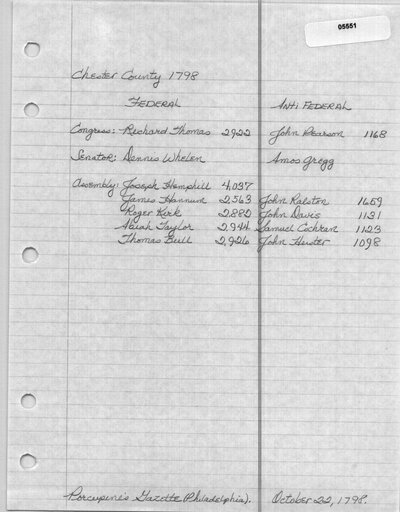 05551
Chester County 1798
FEDERAL ANTI FEDERAL
Congress: Richard Thomas 2922 John Pearson 1168
Senator: Dennis Whelen Amos Gregg
Assembly: Joseph Hemphill 4,037
James Hannum 2,563 John Ralston 1659
Roger Kirk 2,882 John Davis 1131
Abiah Taylor 2,944 Samuel Cochran 1123
Thomas Bull 2,926 John Heister 1098
Porcupine's Gazette (Philadelphia). October 22, 1798.